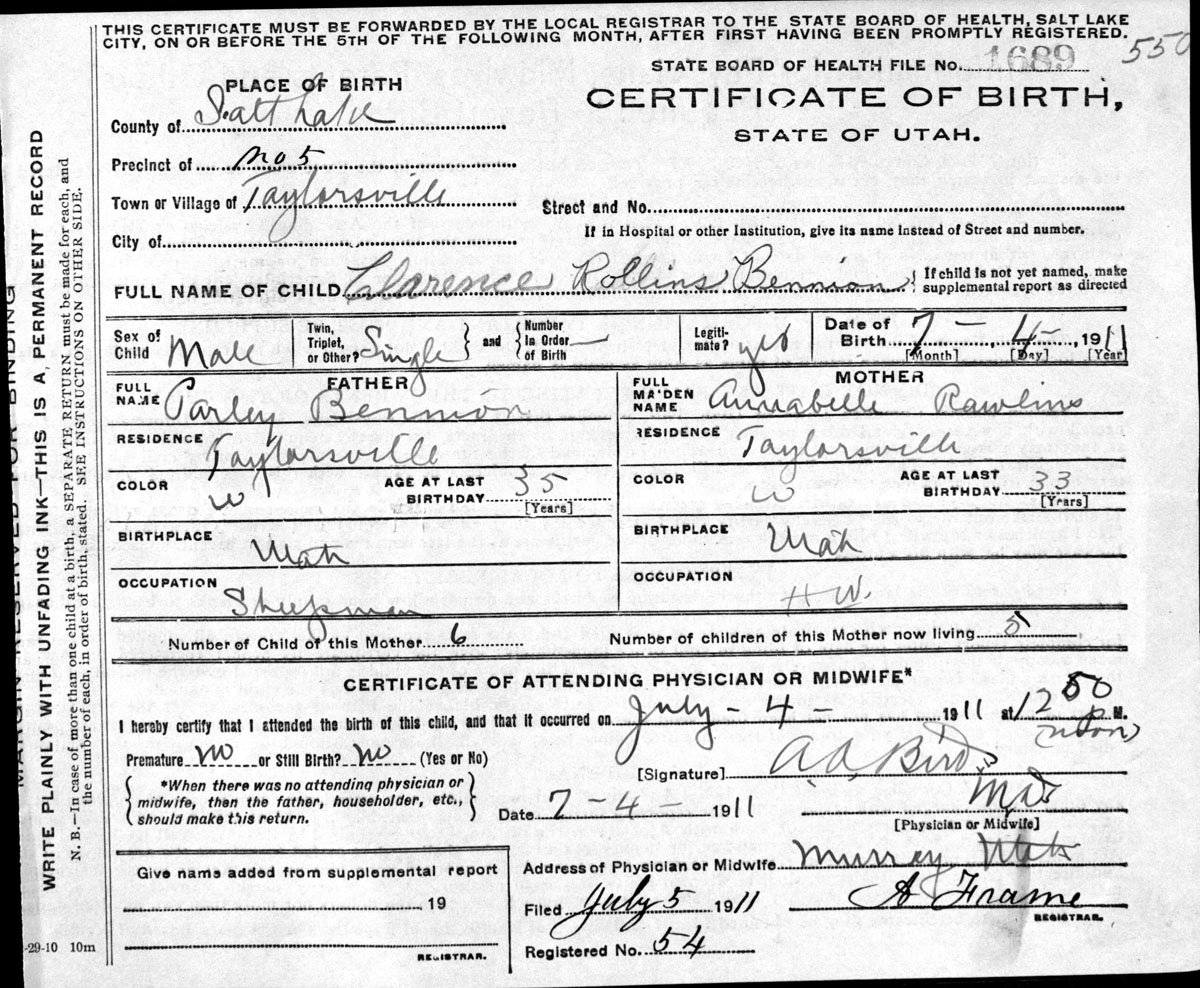 THIS CERTIFICATE MUST BE FORWARDED BY THE LOCAL REGISTRAR TO THE STATE BOARD OF HEALTH, SALT LAKE
CITY, ON OR BEFORE THE 5TH OF THE FOLLOWING MONTH, AFTER FIRST HAVING BEEN PROMPTLY REGISTERED.
550
STATE BOARD OF HEALTH FILE No. 1689
PLACE OF BIRTH
CERTIFICATE OF BIRTH,
STATE OF UTAH.
County of Salt Lake
Precinct of No 5
Town or Village of Taylorsville
Street and No.
City of
If in Hospital or other Institution, give its name instead of Street and number.
FULL NAME OF CHILD Clarence Rollins Bennion } If child is not yet named, make
supplemental report as directed
Sex of Child Male
Twin, Triplet, or Other? Single } and { Number in Order of Birth
Legiti-mate? yes
Date of Birth 7 - 4 - 1911
[Month] [Day] [Year]
FATHER
FULL NAME Parley Bennion
RESIDENCE Taylorsville
COLOR W AGE AT LAST BIRTHDAY 35
[Years]
BIRTHPLACE Utah
OCCUPATION Sheepman
MOTHER
FULL MAIDEN NAME Annabelle Rawlins
RESIDENCE Taylorsville
COLOR W AGE AT LAST BIRTHDAY 33
[Years]
BIRTHPLACE Utah
OCCUPATION HW.
Number of Child of this Mother 6 Number of children of this Mother now living 5
CERTIFICATE OF ATTENDING PHYSICIAN OR MIDWIFE*
I hereby certify that I attended the birth of this child, and that it occurred on July - 4 - 1911 at P. M.
(noon)
Premature No or Still Birth? No (Yes or No)
[Signature] A.A. Bird
{ *When there was no attending physician or
midwife, then the father, householder, etc.,
should make this return. }
Date 7 - 4 - 1911
[Physician or Midwife]
Give name added from supplemental report
19
REGISTRAR.
Address of Physician or Midwife Murray Utah
Filed July 5 1911 A Frame
REGISTRAR.
Registered No. 54
-29-10 10m
MARGIN RESERVED FOR BINDING
WRITE PLAINLY WITH UNFADING INK—THIS IS A PERMANENT RECORD
N. B.—In case of more than one child at a birth, a SEPARATE RETURN must be made for each, and
the number of each, in order of birth, stated. SEE INSTRUCTIONS ON OTHER SIDE.